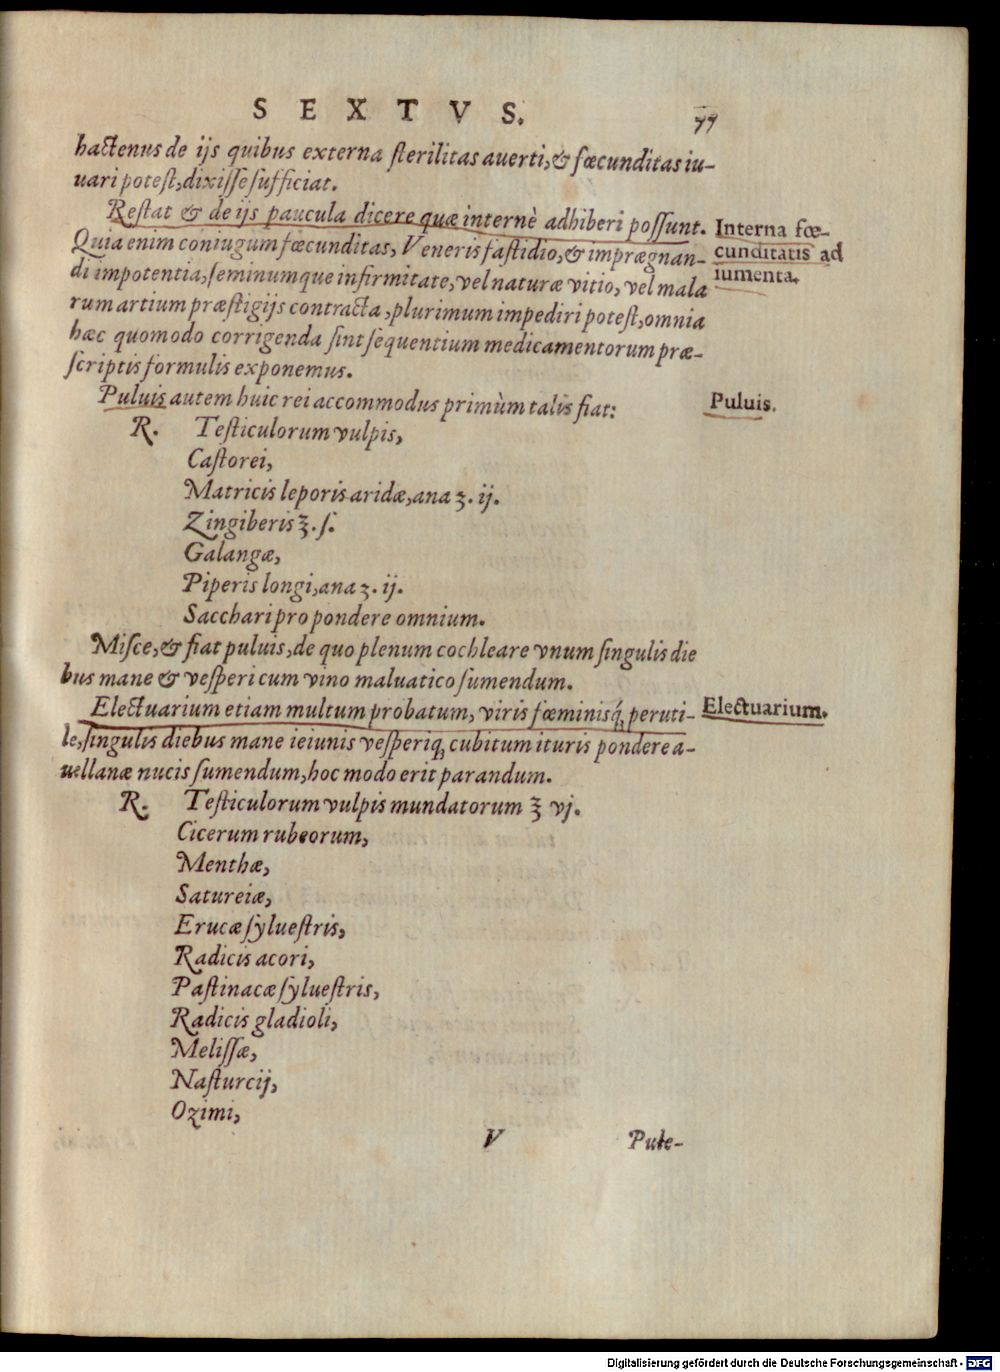 SEXTVS. 77
hactenus de ijs quibus externa ſterilitas auerti, & fœcunditas iu-
uari poteſt, dixiſſe ſufficiat.
Reſtat & de ijs paucula dicere quæ internè adhiberi poſſunt.
Interna fœ-
cunditatis ad
iumenta.
Quia enim coniugum fœcunditas, Veneris faſtidio, & imprægnan-
di impotentia, ſeminumque infirmitate, vel naturæ vitio, vel mala
rum artium præſtigijs contracta, plurimum impediri poteſt, omnia
hæc quomodo corrigenda ſint ſequentium medicamentorum præ-
ſcriptis formulis exponemus.
Puluis autem huic rei accommodus primùm talis fiat:
Puluis.
R. Teſticulorum vulpis,
Caſtorei,
Matricis leporis aridæ, ana ʒ. ij.
Zingiberis ℥. ſ.
Galangæ,
Piperis longi, ana ʒ. ij.
Sacchari pro pondere omnium.
Miſce, & fiat puluis, de quo plenum cochleare vnum ſingulis die
bus mane & veſperi cum vino maluatico ſumendum.
Electuarium etiam multum probatum, viris fœminisq́; peruti-
Electuarium.
le, ſingulis diebus mane ieiunis veſperiq; cubitum ituris pondere a-
uellanæ nucis ſumendum, hoc modo erit parandum.
R. Teſticulorum vulpis mundatorum ℥ vj.
Cicerum rubeorum,
Menthæ,
Satureiæ,
Erucæ ſylueſtris,
Radicis acori,
Paſtinacæ ſylueſtris,
Radicis gladioli,
Meliſſæ,
Naſturcij,
Ozimi,
V Pule-
Digitalisierung gefördert durch die Deutsche Forschungsgemeinschaft - DFG